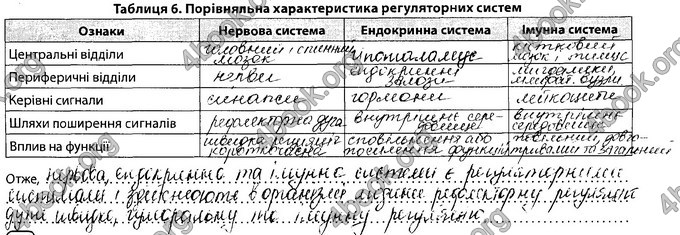 Таблиця 6. Порівняльна характеристика регуляторних систем
Ознаки Нервова система Ендокринна система Імунна система
Центральні відділи головний і спинний мозок гіпоталамус кістковий мозок і тимус
Периферичні відділи нерви ендокринні залози мигдалики, лімфат. вузли
Керівні сигнали синапси гормони лейкоцити
Шляхи поширення сигналів рефлекторна дуга внутрішнє середовище внутрішнє середовище
Вплив на функції швидка реакція короткочасна сповільнення або посилення функцій
Отже, нервова, ендокринна та імунна системи є регуляторними
системами і здійснюють в організмі людини рефлекторну регуляцію
дуже швидко, гуморальну та імунну регуляцію
4book.org